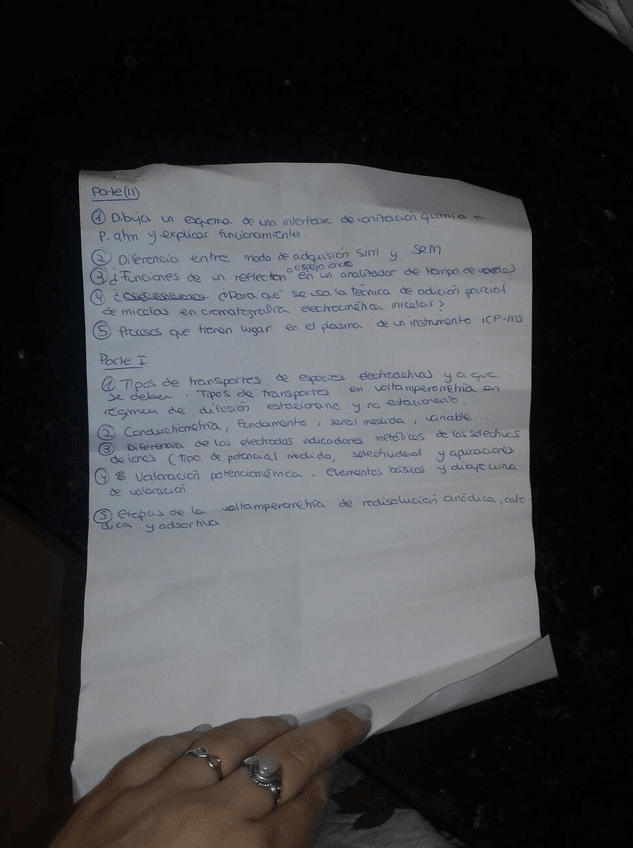 Parte (II)
① Dibuja un esquema de una interfase de ionización química
P. atm y explicar funcionamiento.
② Diferencia entre modo de adquisión SIM y SRM
③ ¿Funciones de un reflectron o espejo iónico en un analizador de tiempo de vuelo?
④ ¿Para qué se usa la técnica de adición parcial
de micelas en cromatografía electrocinética micelar?
⑤ Procesos que tienen lugar en el plasma de un instrumento ICP-MS.
Parte I
① Tipos de transportes de especies electroactivas y a que
se deben. Tipos de transportes en voltamperometría en
régimen de difusión estacionario y no estacionario.
② Conductimetría, fundamento, señal medida, variable...
③ Diferencia de los electrodos indicadores metálicos de los selectivos
de iones (Tipo de potencial medido, selectividad y aplicaciones
④ Valoración potenciométrica. Elementos básicos y dibuje curva
de valoración
⑤ Etapas de la voltamperometría de redisolución anódica, cató-
dica y adsortiva.